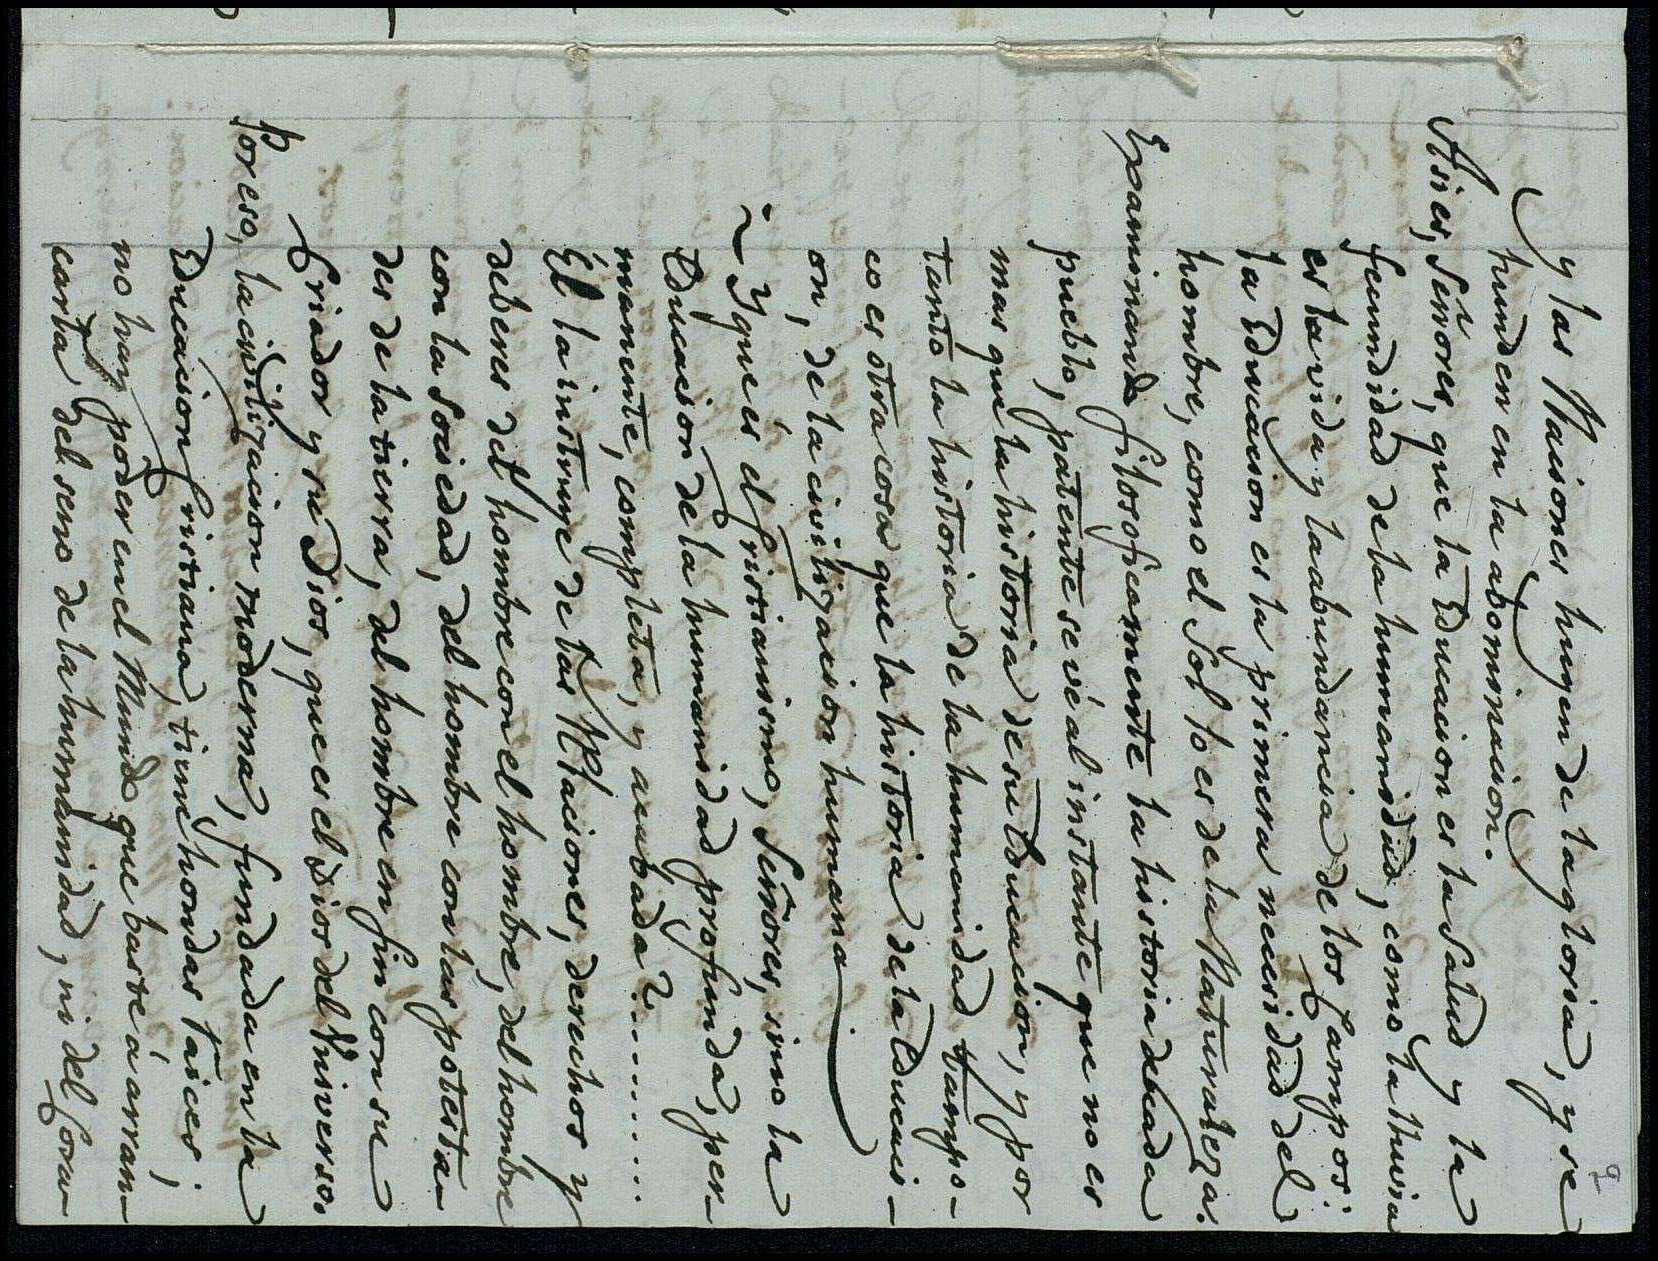 2
y las Naciones huyen de la gloria, y se
hunden en la abominacion.
Asi es, Señores, que la Educacion es la Salud y la
fecundidad de la humanidad, como la lluvia
es la vida y la abundancia de los Campos:
la Educacion es la primera necesidad del
hombre, como el Sol lo es de la Naturaleza.
Examinando filosoficamente la historia de cada
pueblo, patente se vé al instante que no es
mas que la historia de su Educacion, y por
tanto la historia de la humanidad tampo-
co es otra cosa que la historia de la Educaci-
on, de la civilizacion humana.
Y que és el Cristianismo, Señores, sino la
Educacion de la humanidad profunda, per-
manente, completa, y acabada?........
Él la instruye de las Naciones, derechos y
deberes del hombre con el hombre, del hombre
con la Sociedad, del hombre con las potesta-
des de la tierra, del hombre en fin con su
Criador y su Dios, que es el Dios del Universo.
Por eso, la civilizacion moderna, fundada en la
Educacion Cristiana, tiene hondas raices;
no hay poder en el Mundo que baste á arran-
carla del seno de la humanidad, ni del Cora-